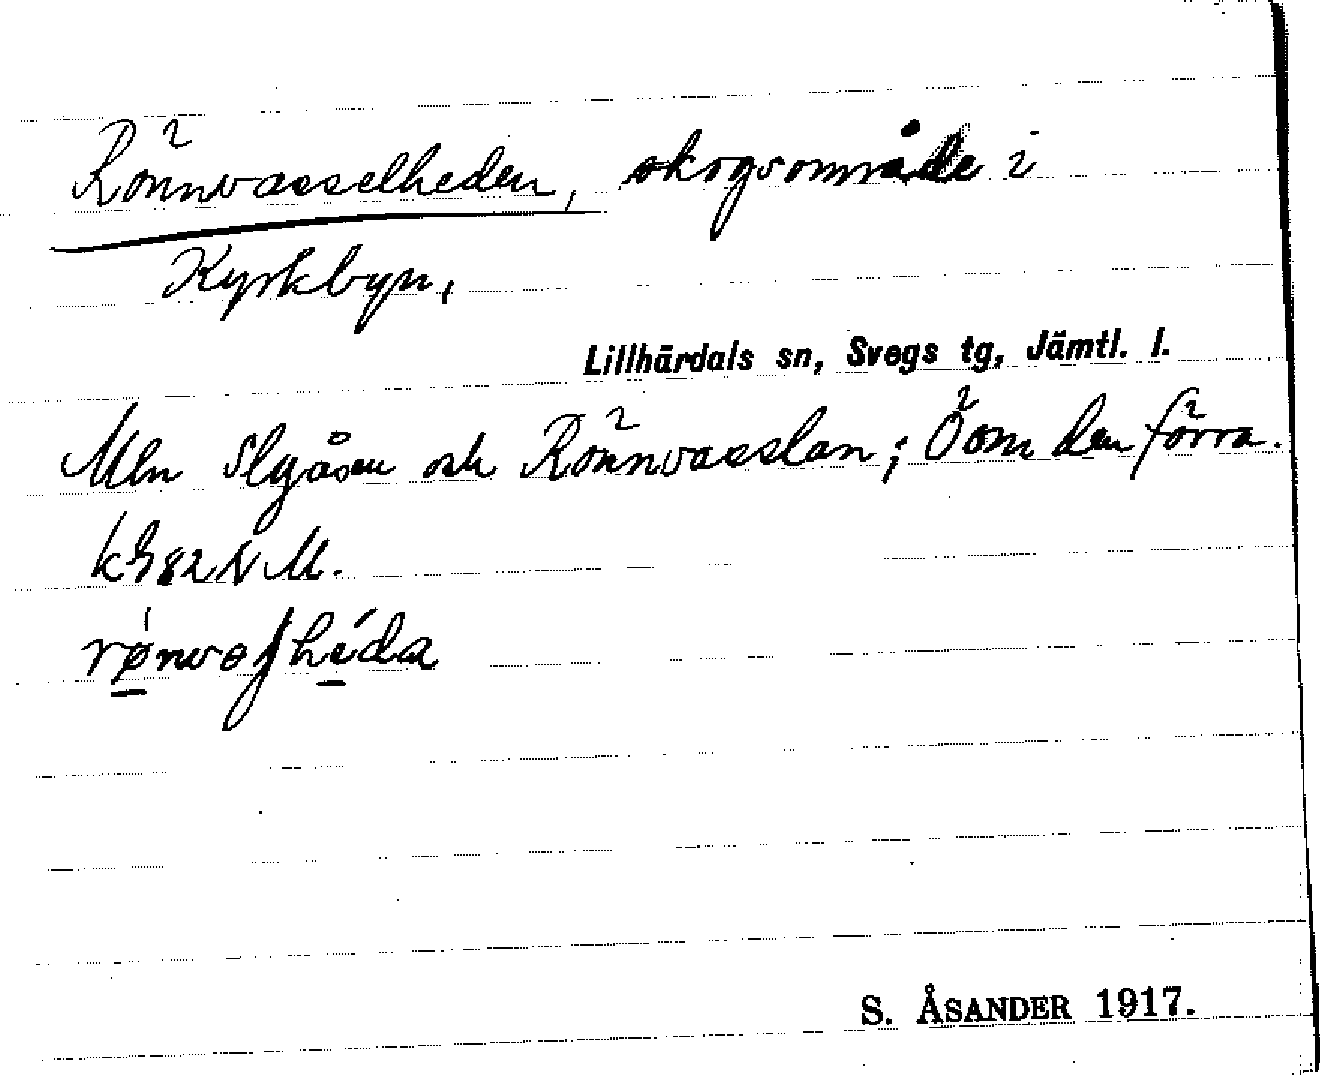 Rönnvasselheden, skogsområde i
Kyrkbyn,
Lillhärdals sn, Svegs tg, Jämtl. l.
Mln Slyåsen och Rönnvasslan; Ö om den förra.
k 82 N M.
S. ÅSANDER 1917.